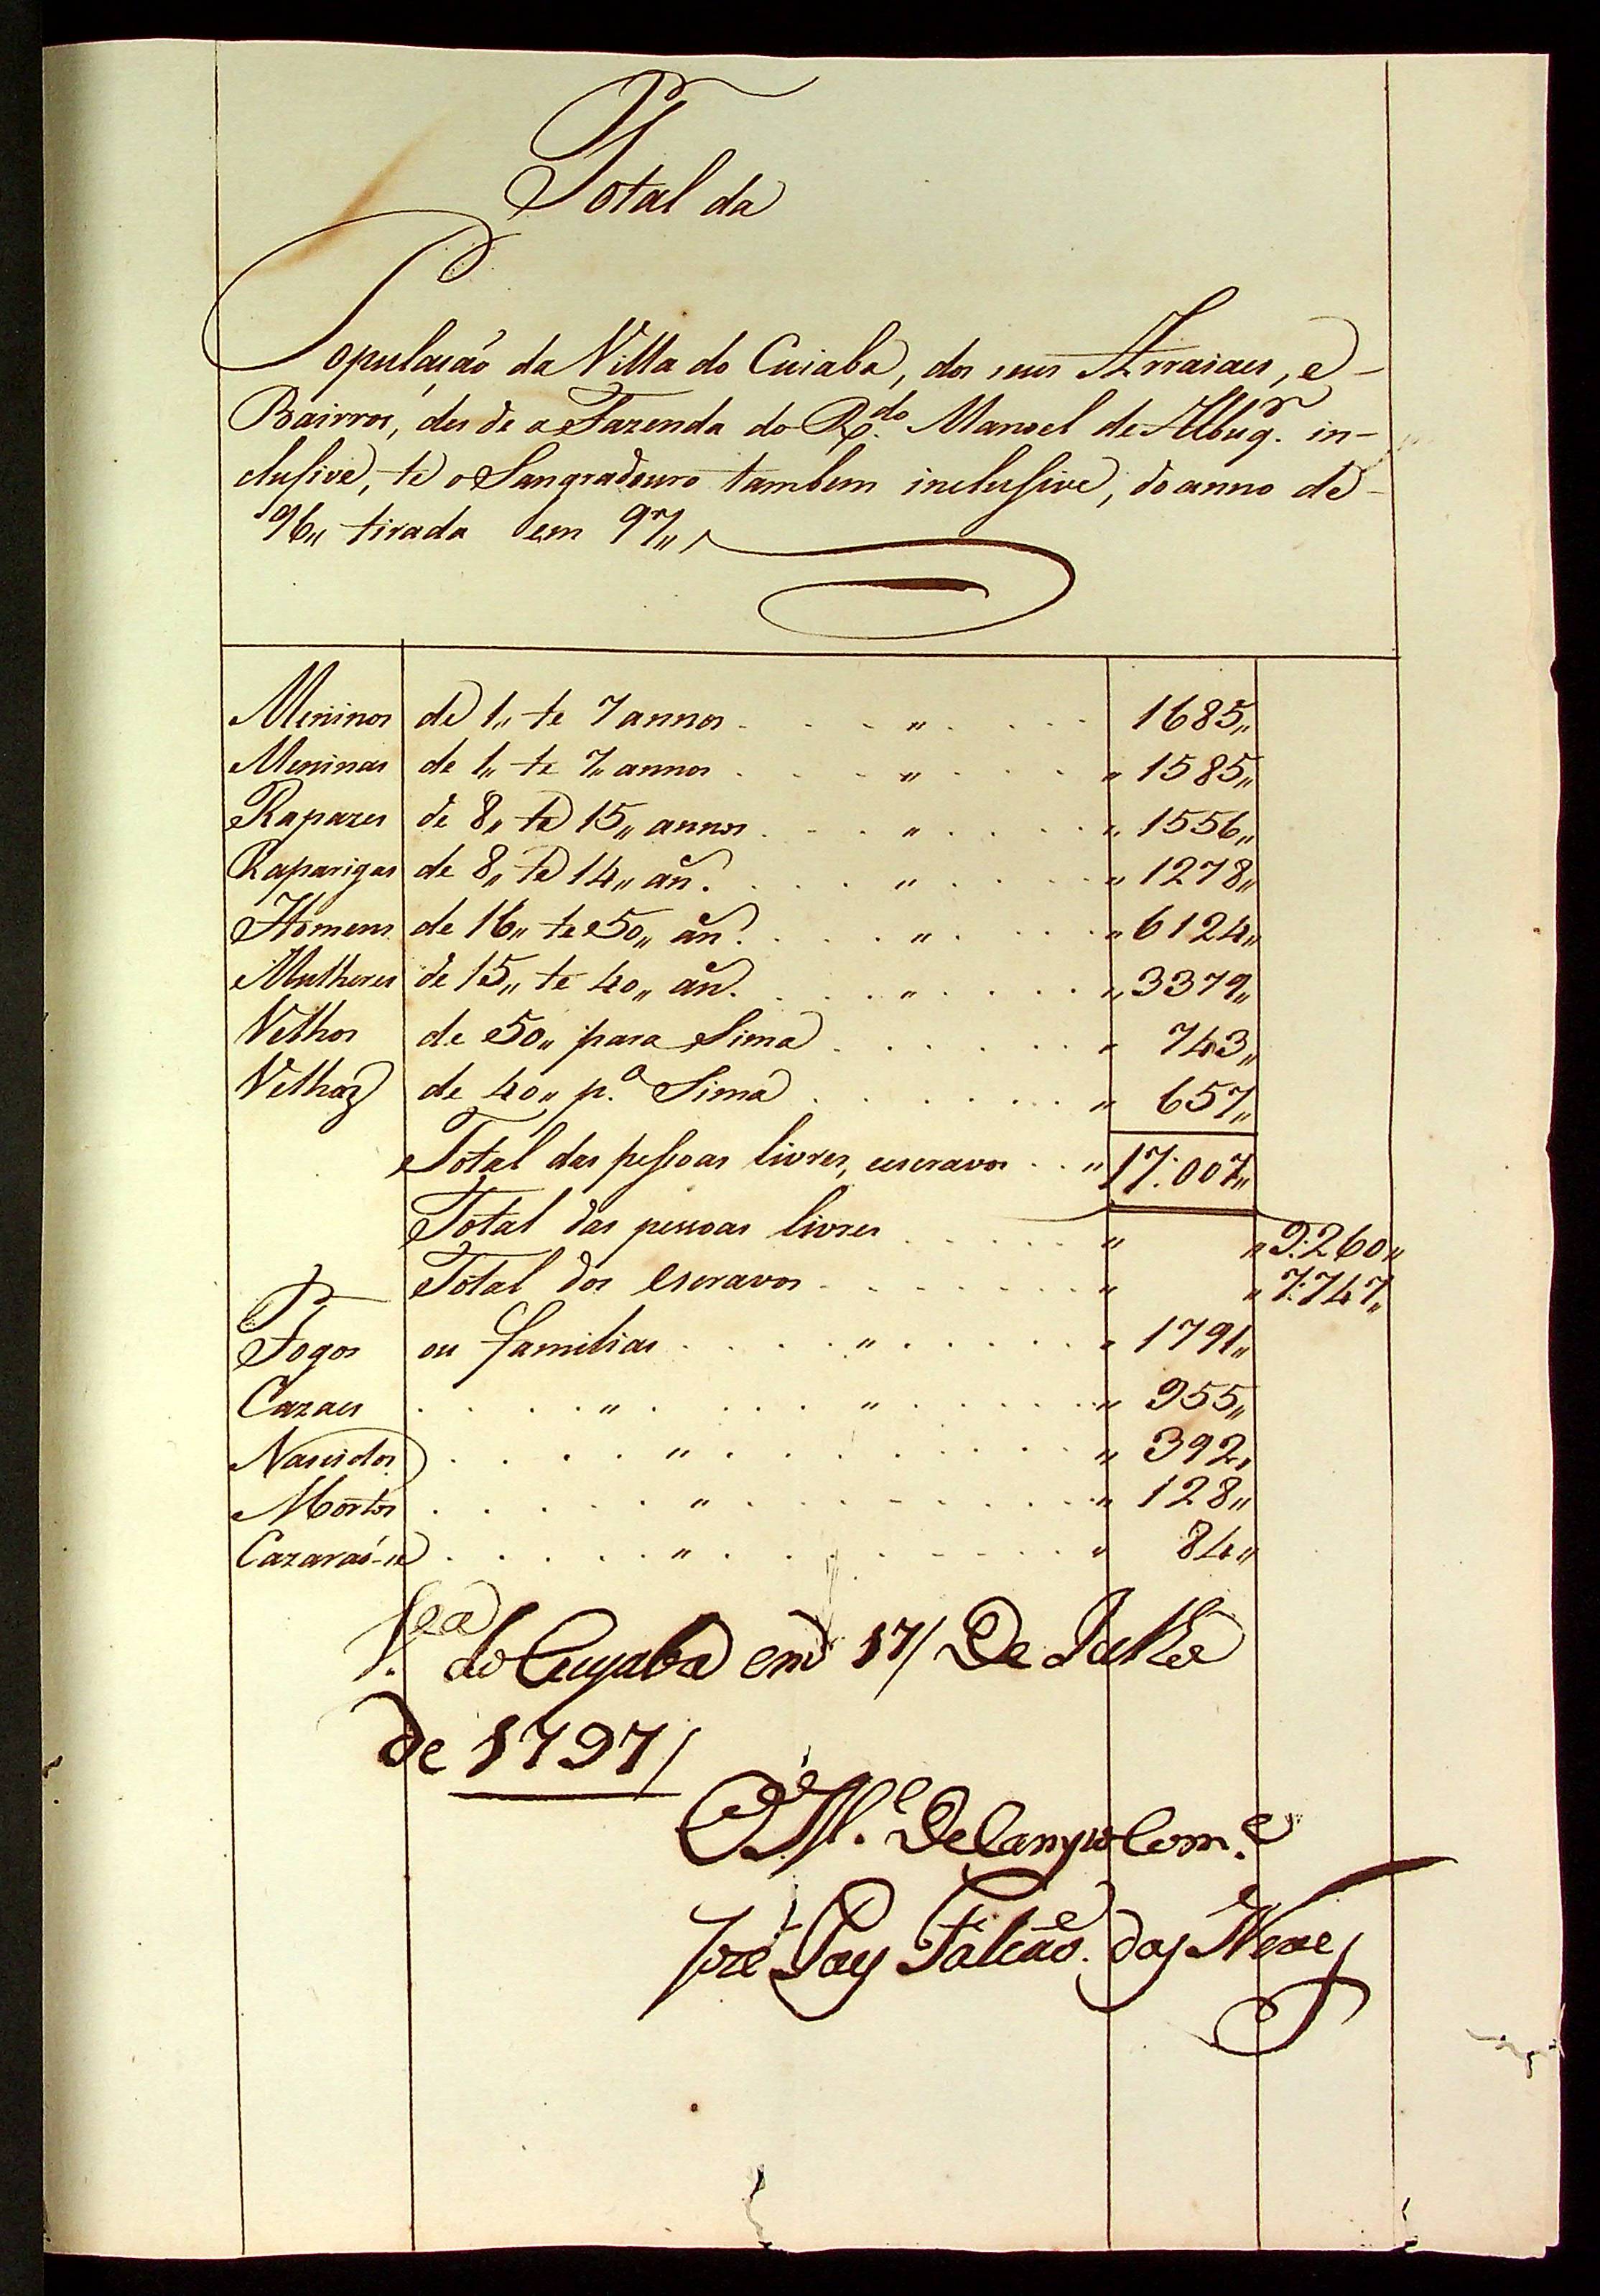 Total da
População da Villa do Cuiaba, dos seus Arraiaes, e
Bairros, des de a Fazenda do R.do Manoel de Albuq. in-
clusive, te o Sangradouro tambem inclusive, do anno de
96,, tirada em 97,,
Meninos de 1,, te 7 annos . . . ,, . . . 1685,,
Meninas de 1,, te 7,, annos . . . ,, . . . ,, 1585,,
Rapazes de 8,, te 15,, annos . . . ,, . . . ,, 1556,,
Raparigas de 8,, te 14,, an̄. . . . ,, . . . ,, 1278,,
Homens de 16,, te 50,, an̄. . . . ,, . . . ,, 6124,,
Mulheres de 15,, te 40,, an̄. . . . ,, . . . ,, 3379,,
Velhos de 50,, para Sima . . . . . . ,, 743,,
Velhaz de 40,, p.a Sima . . . . . . ,, 657,,
Total das pessoas livres, e escravos . . ,, 17:007,,
Total das pessoas livres . . . . . ,, ,, 9:260,,
Total dos escravos . . . . . . ,, ,, 7:747,,
Fogos ou familias . . . . ,, . . . . . ,, 1791,,
Cazaes . . . . ,, . . . . ,, . . . . . ,, 955,,
Nascidos . . . . ,, . . . . . . . . ,, 392,,
Mortos . . . . . ,, . . . . . . . . ,, 128,,
Cazarão-se . . . . . ,, . . . . . . . ,, 84,,
V.a do Cuyaba em 17/ De Julho
de 1797/
O M.e De Campo Com.e
Joze Paes Falcão das Neves